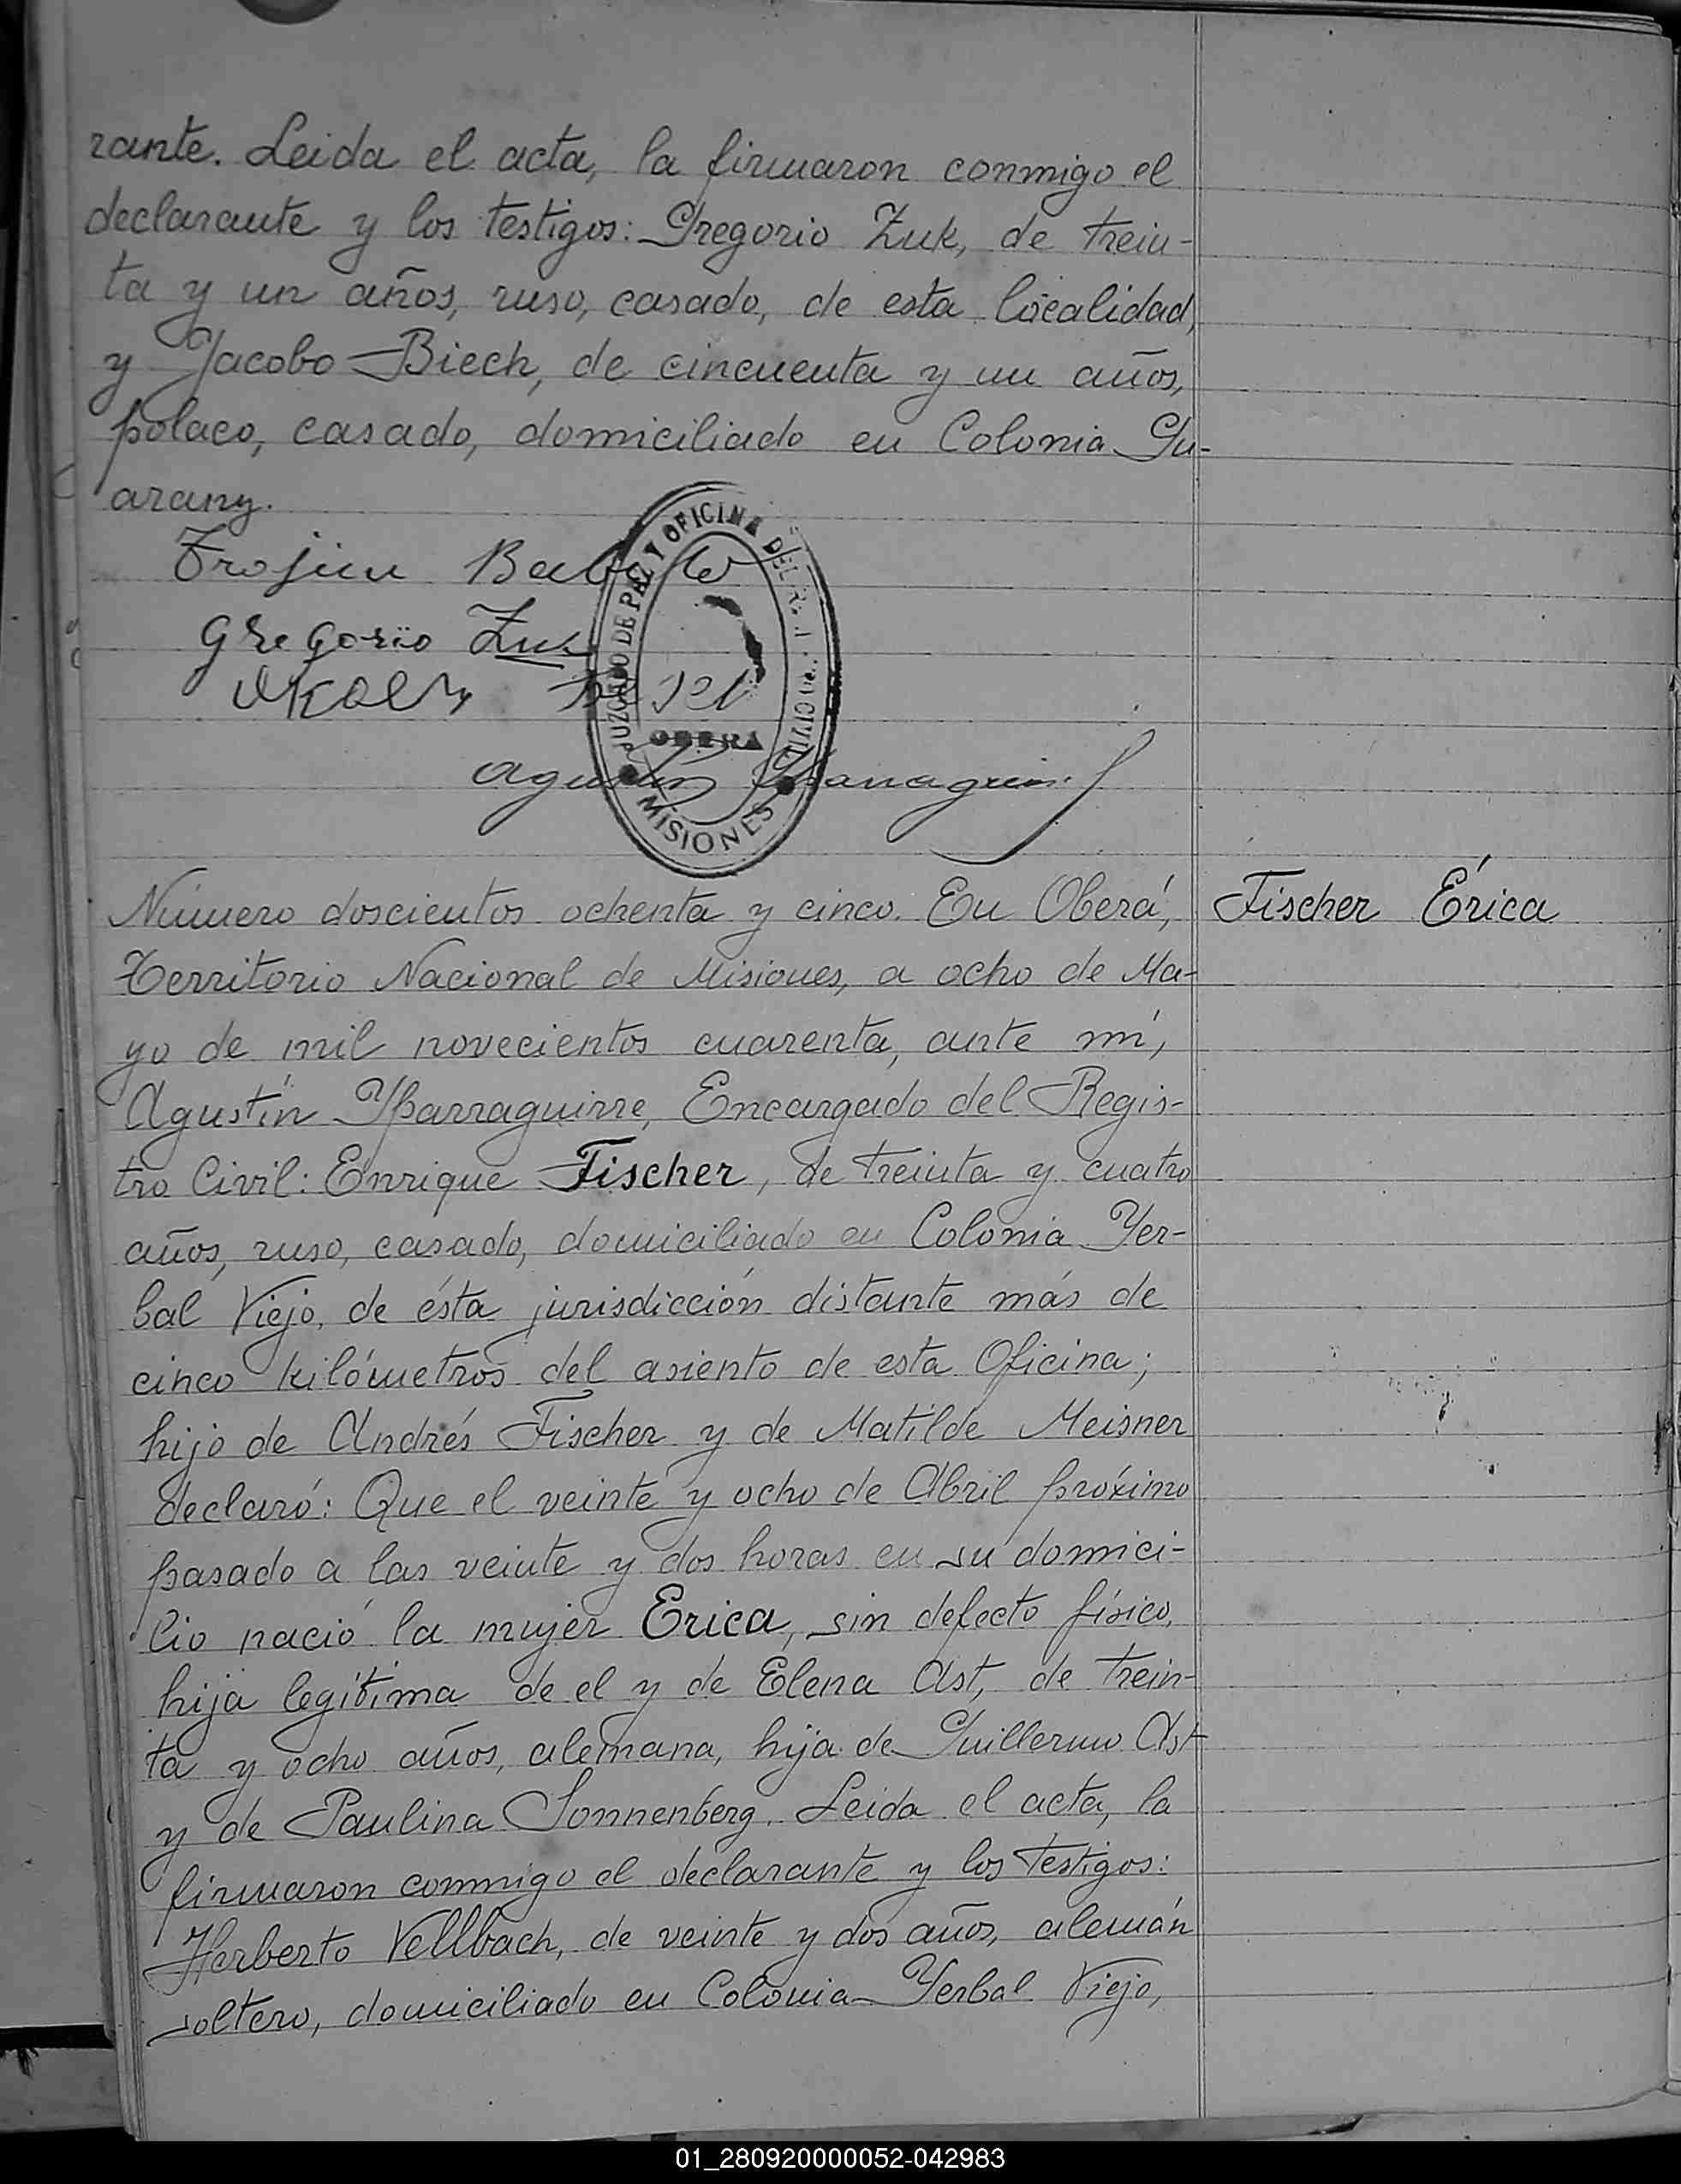 rante. Leida el acta, la firmaron conmigo el
declarante y los testigos: Gregorio Zuk, de trein-
ta y un años, ruso, casado, de esta localidad,
y Jacobo Biech, de cincuenta y un años,
polaco, casado, domiciliado en Colonia Gu-
arany.
JUZGADO DE PAZ Y OFICINA DEL R. CIVIL
OBERA
MISIONES
Gregorio Zuk
Agustín Yparraguirre
Número doscientos ochenta y cinco. En Oberá,
Fischer Érica
Territorio Nacional de Misiones, a ocho de Ma-
yo de mil novecientos cuarenta, ante mí,
Agustín Yparraguirre, Encargado del Regis-
tro Civil: Enrique Fischer, de treinta y cuatro
años, ruso, casado, domiciliado en Colonia Yer-
bal Viejo, de ésta jurisdicción distante más de
cinco kilómetros del asiento de esta Oficina;
hijo de Andrés Fischer y de Matilde Meisner
declaró: Que el veinte y ocho de Abril próximo
pasado a las veinte y dos horas en su domici-
lio nació la mujer Erica, sin defecto físico,
hija legítima de el y de Elena Ast, de trein-
ta y ocho años, alemana, hija de Guillermo Ast
y de Paulina Sonnenberg. Leida el acta, la
firmaron conmigo el declarante y los testigos:
Herberto Vellbach, de veinte y dos años, alemán
soltero, domiciliado en Colonia Yerbal Viejo,
01_280920000052-042983